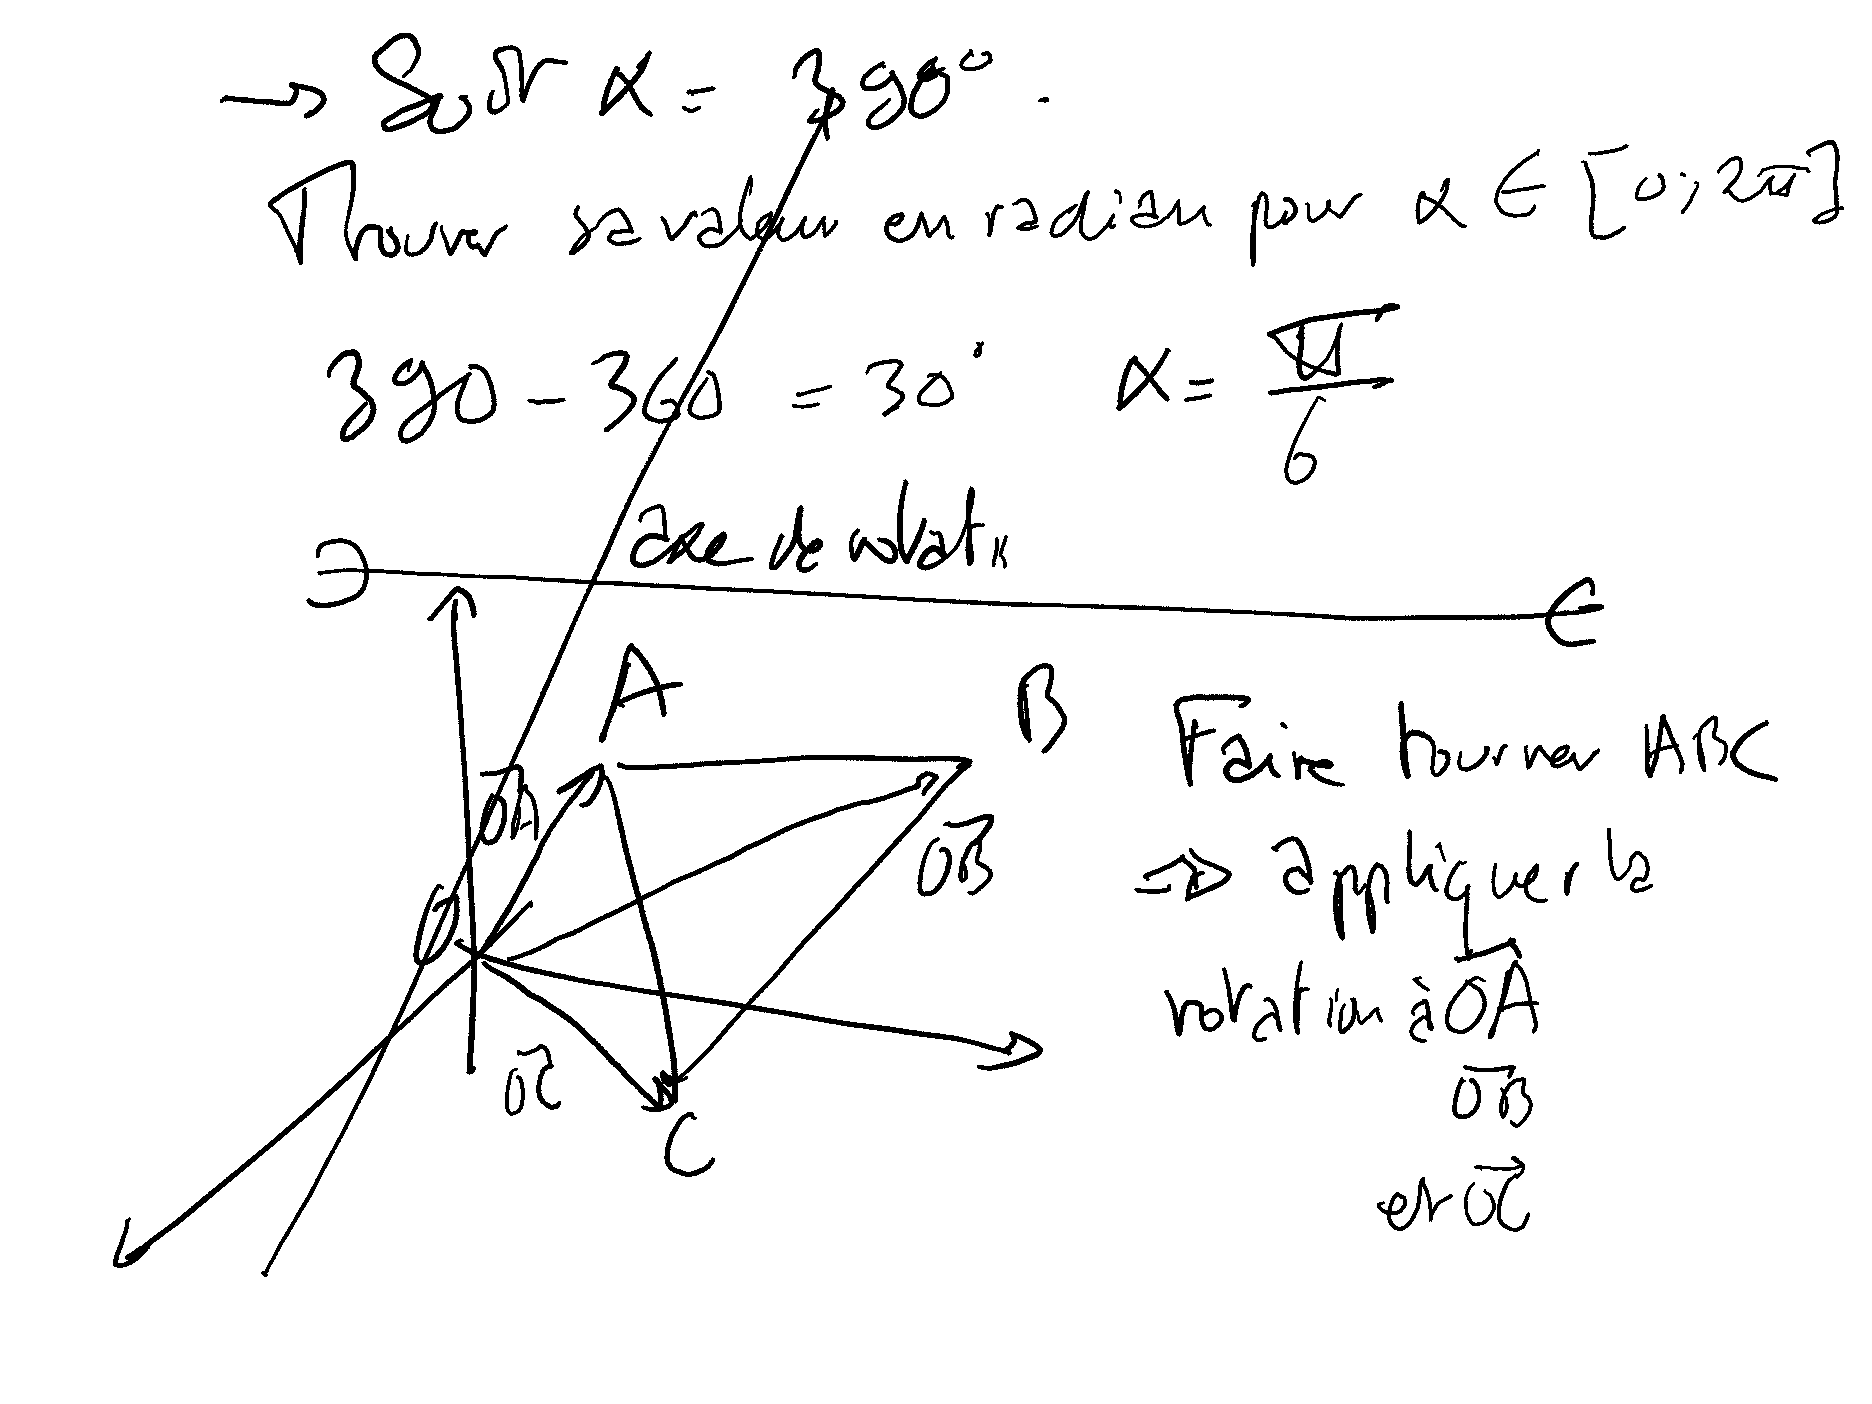 → Soit α = 390° .
Trouver sa valeur en radian pour α ∈ [0; 2π]
390 - 360 = 30° α = π/6
axe de rotat°
A
B
OA
O
OB
OC
C
Faire tourner ABC
⇒ appliquer la
rotation à OA
OB
et OC